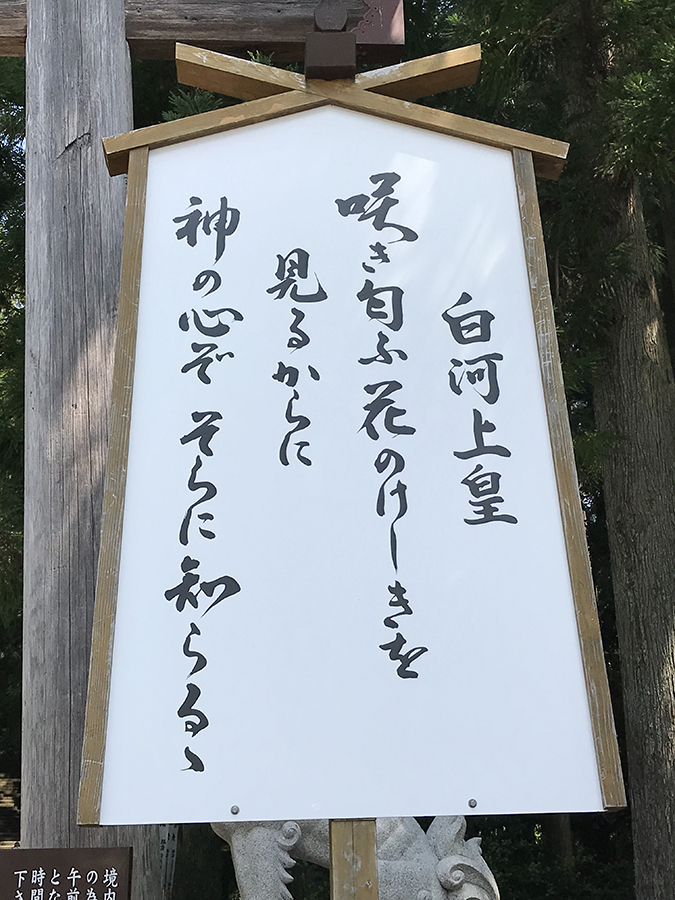 白河上皇
咲き匂ふ花のけしきを
見るからに
神の心ぞ そらに知らるゝ
境内
の為
午前
とな
時間
下さ